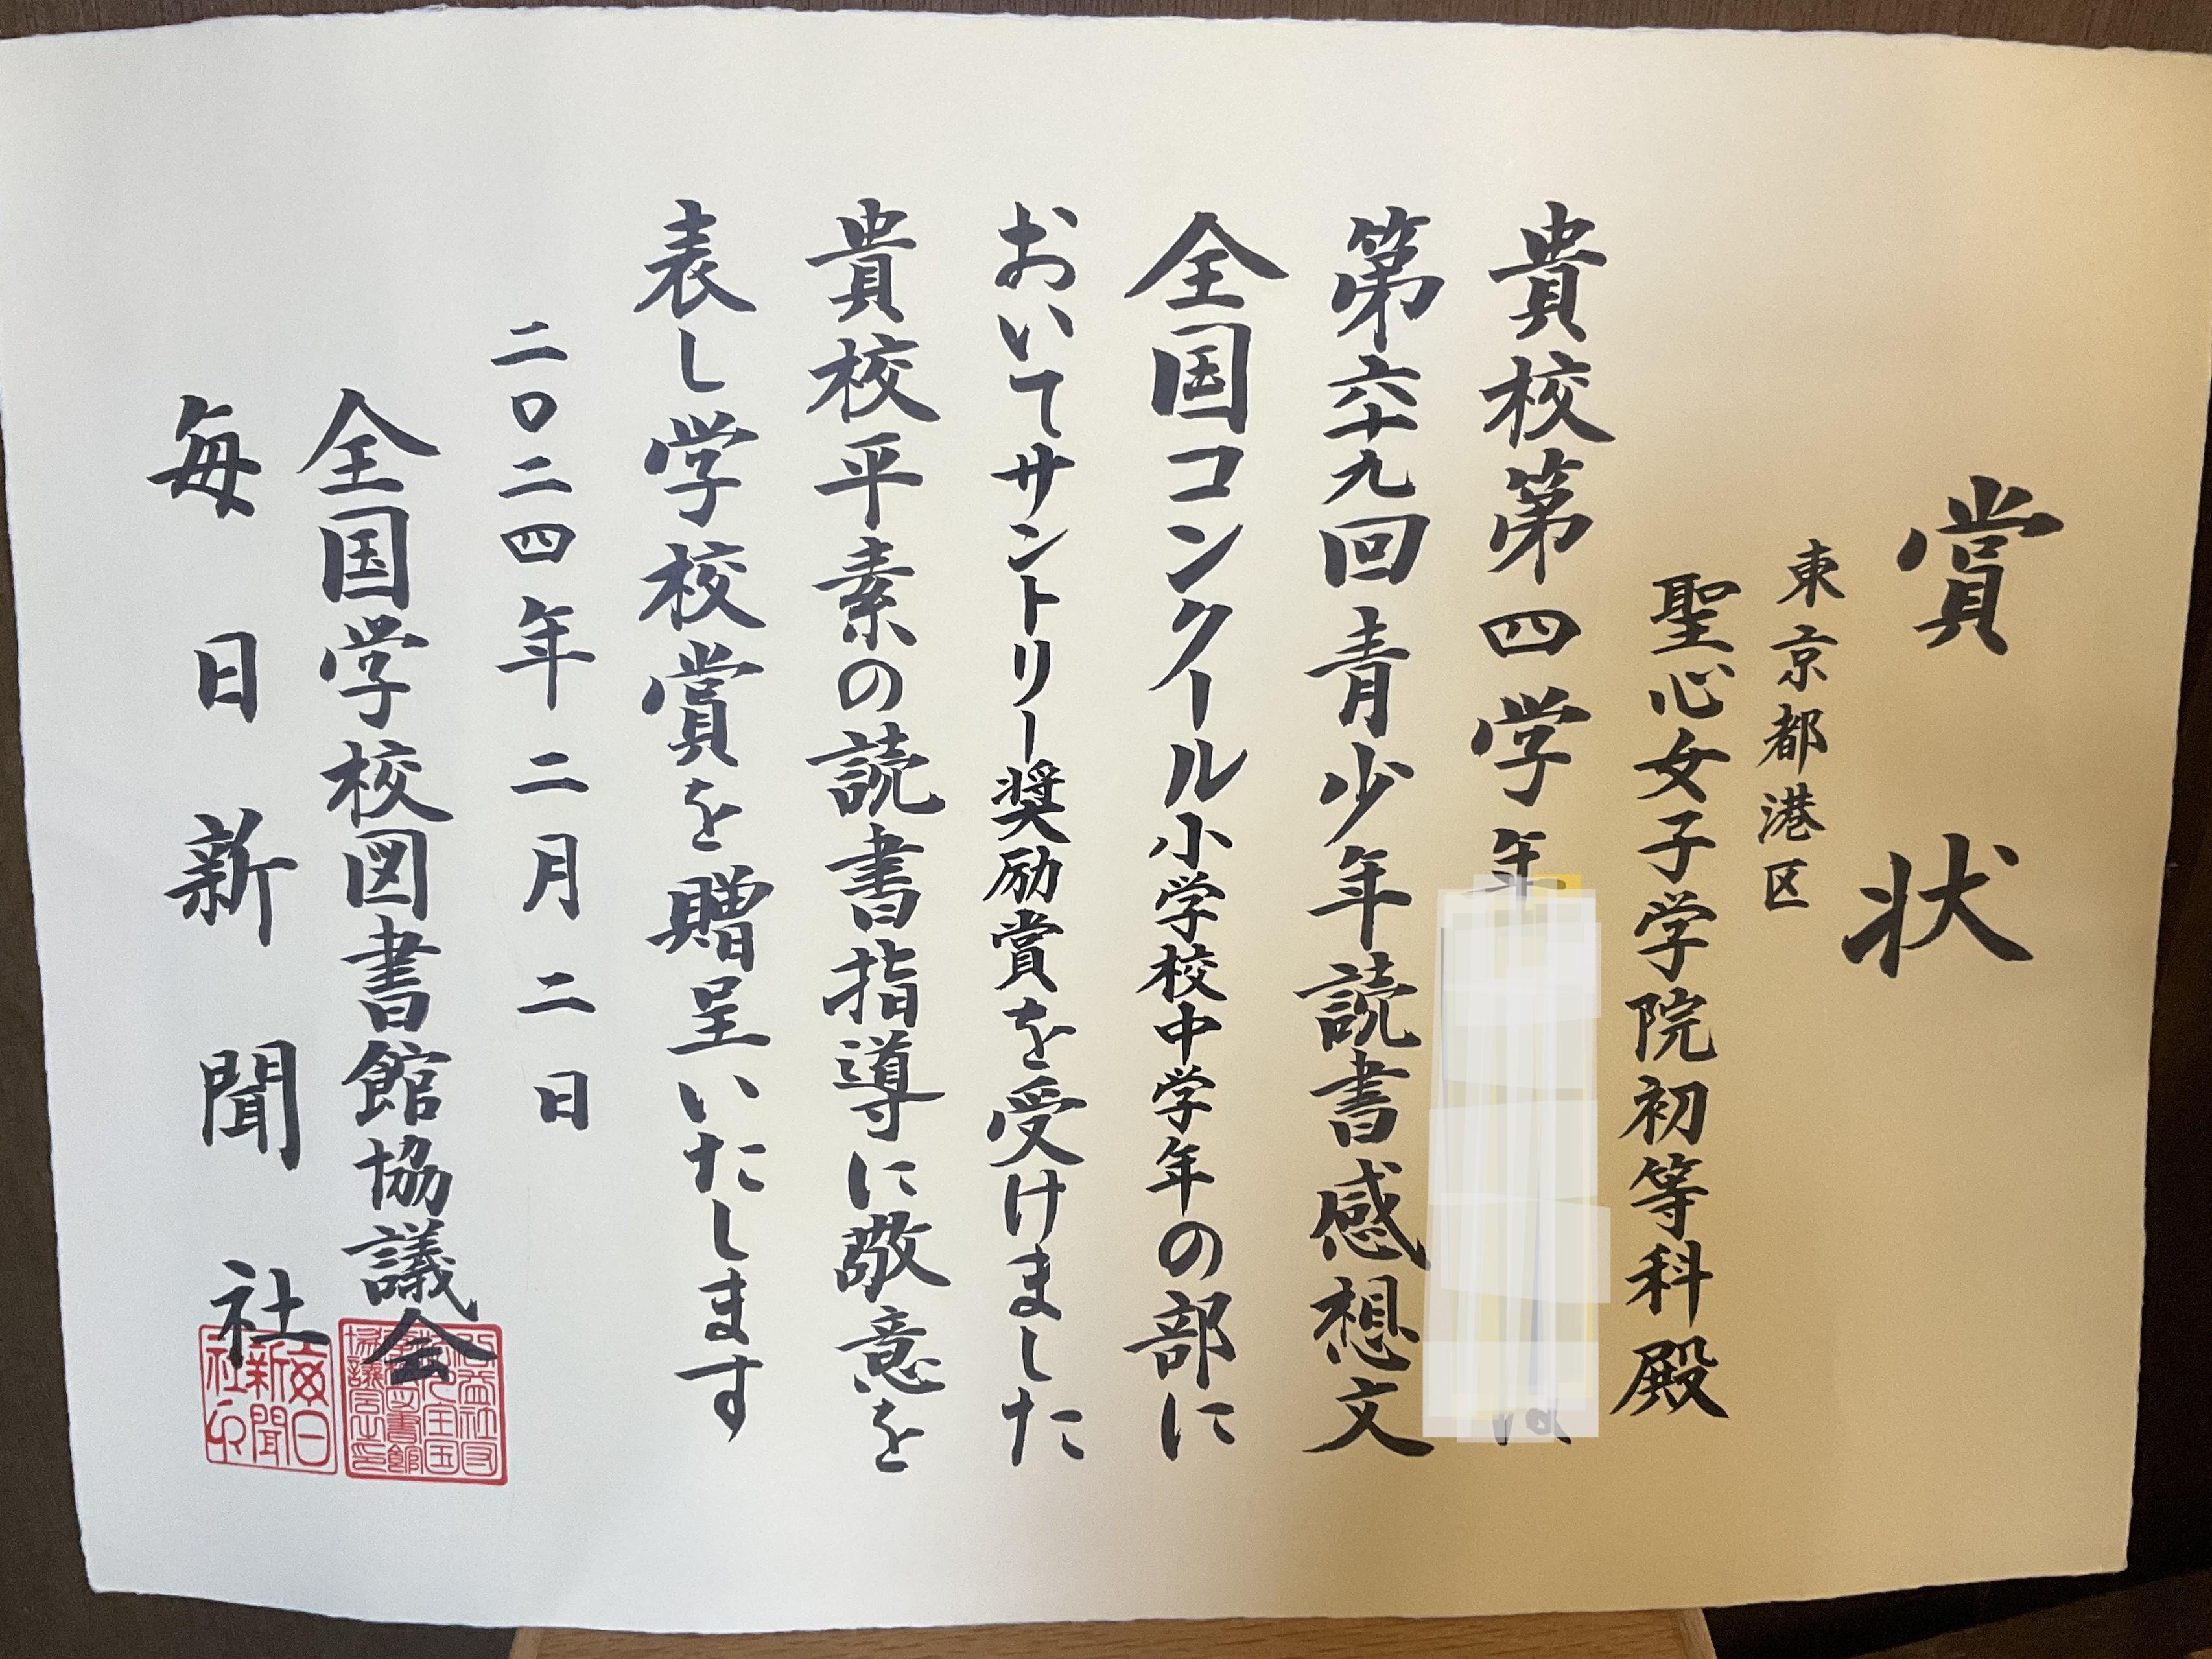 賞状
東京都港区
聖心女子学院初等科殿
貴校第四学年
第六十九回青少年読書感想文
全国コンクール小学校中学年の部に
おいてサントリー奨励賞を受けました
貴校平素の読書指導に敬意を
表し学校賞を贈呈いたします
二〇二四年二月二日
全国学校図書館協議会
毎日新聞社